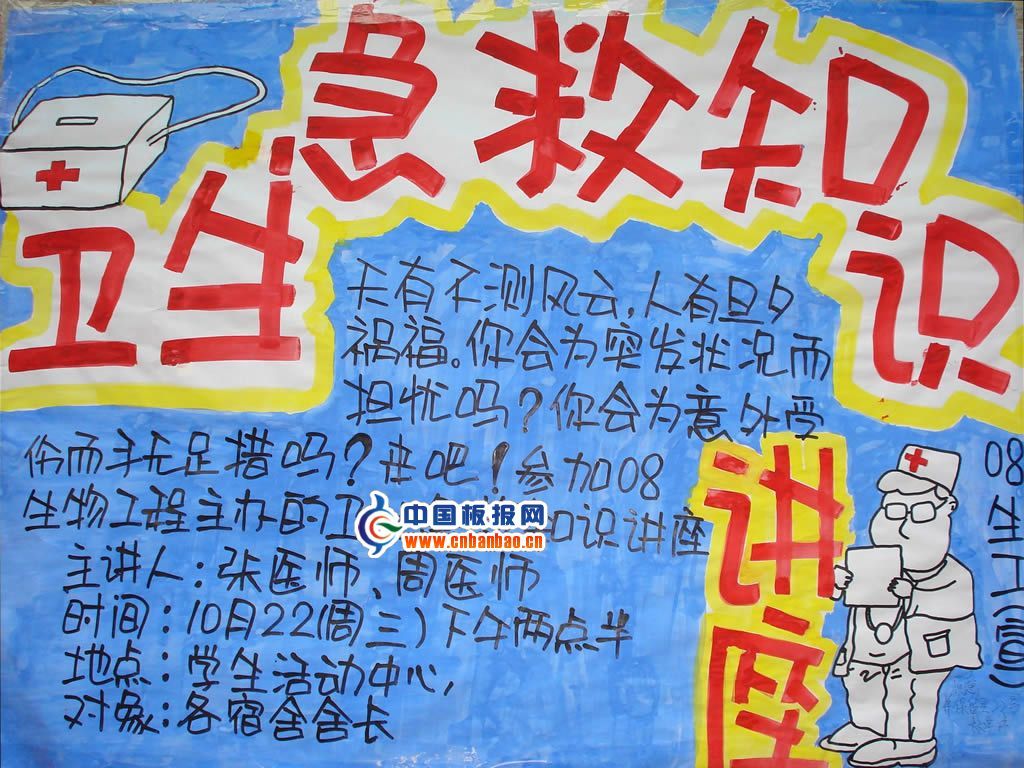 卫生急救知识
讲座
天有不测风云,人有旦夕
祸福。你会为突发状况而
担忧吗?你会为意外受
伤而手无足措吗?来吧!参加08
生物工程主办的卫 知识讲座
主讲人:张医师、周医师
时间:10月22(周三)下午两点半
地点:学生活动中心,
对象:各宿舍舍长
08生工(宣)
中国板报网
www.cnbanbao.cn